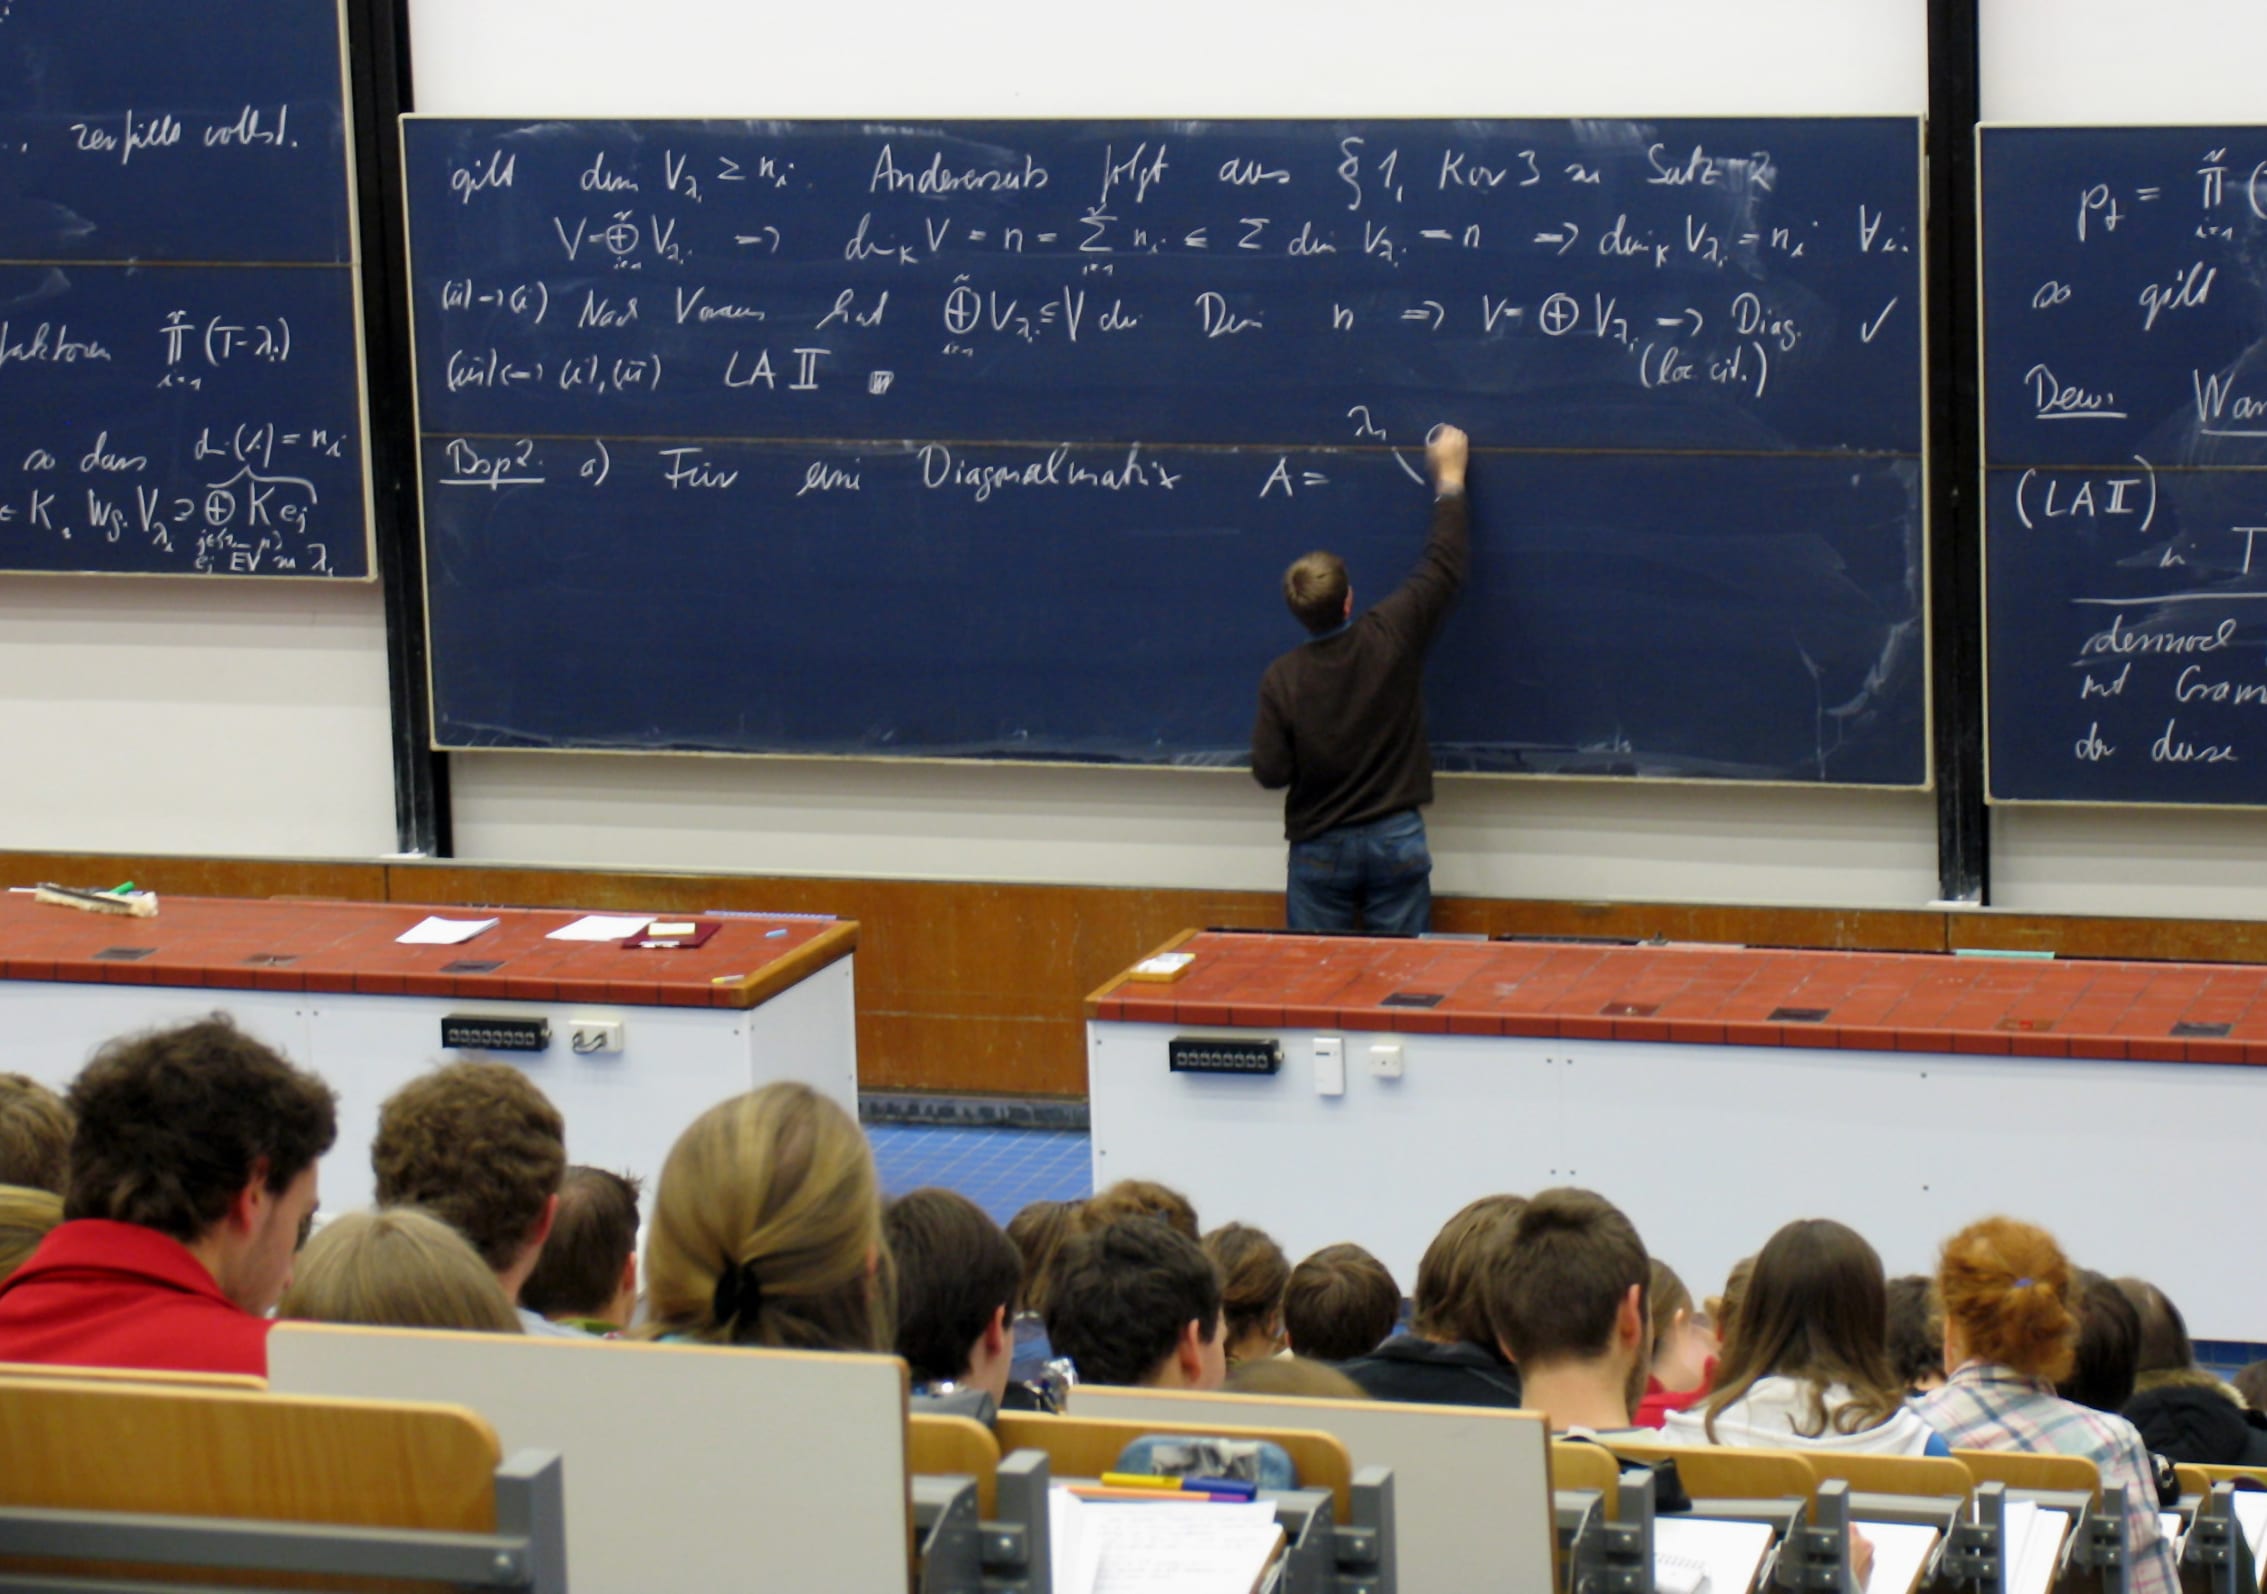 zerfällt vollst.
faktoren ∏̃_{i=1} (T-λ_i)
so dass d_i(λ) = n_i
∈ K. Wg. V_{λ_i} ⊇ ⊕ K e_j
e_j EV zu λ_i
gilt dim V_{λ_i} ≥ n_i. Andererseits folgt aus §1, Kor 3 zu Satz 2
V = ⊕̃_{i=1} V_{λ_i} => dim_K V = n = Σ_{i=1}^r n_i ≤ Σ dim V_{λ_i} = n => dim_K V_{λ_i} = n_i ∀ i.
(ii)->(i) Nach Voraus. hat ⊕̃_{i=1} V_{λ_i} ≤ V die Dim n => V = ⊕ V_{λ_i} -> Diag. ✓
(loc cit.)
(iii)<->(i),(ii) LA II
Bsp 2. a) Für eine Diagonalmatrix A = λ_1
p_f = ∏̃_{i=1} (
so gilt
Bew. War
(LA II)
in T
dennoch
mit Gram
der diese